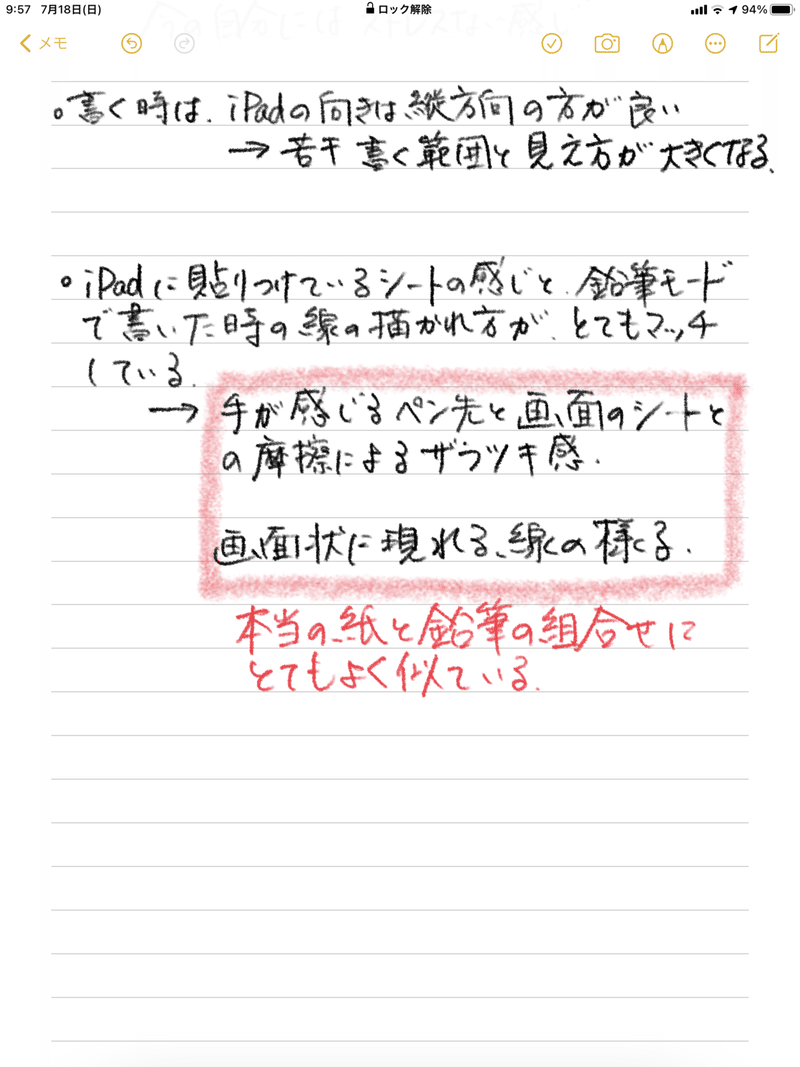 9:57 7月18日(日) ロック解除 94%
メモ
今の自分にはストレスない感じ
。書く時は、iPadの向きは縦方向の方が良い
→ 若干書く範囲と見え方が大きくなる、
。iPadに貼りつけているシートの感じと、鉛筆モード
で書いた時の線の描かれ方が、とてもマッチ
している。
→ 手が感じるペン先と画面のシートと
の摩擦によるザラツキ感.
画面状に現れる、線の様子.
本当の紙と鉛筆の組合せに
とてもよく似ている.